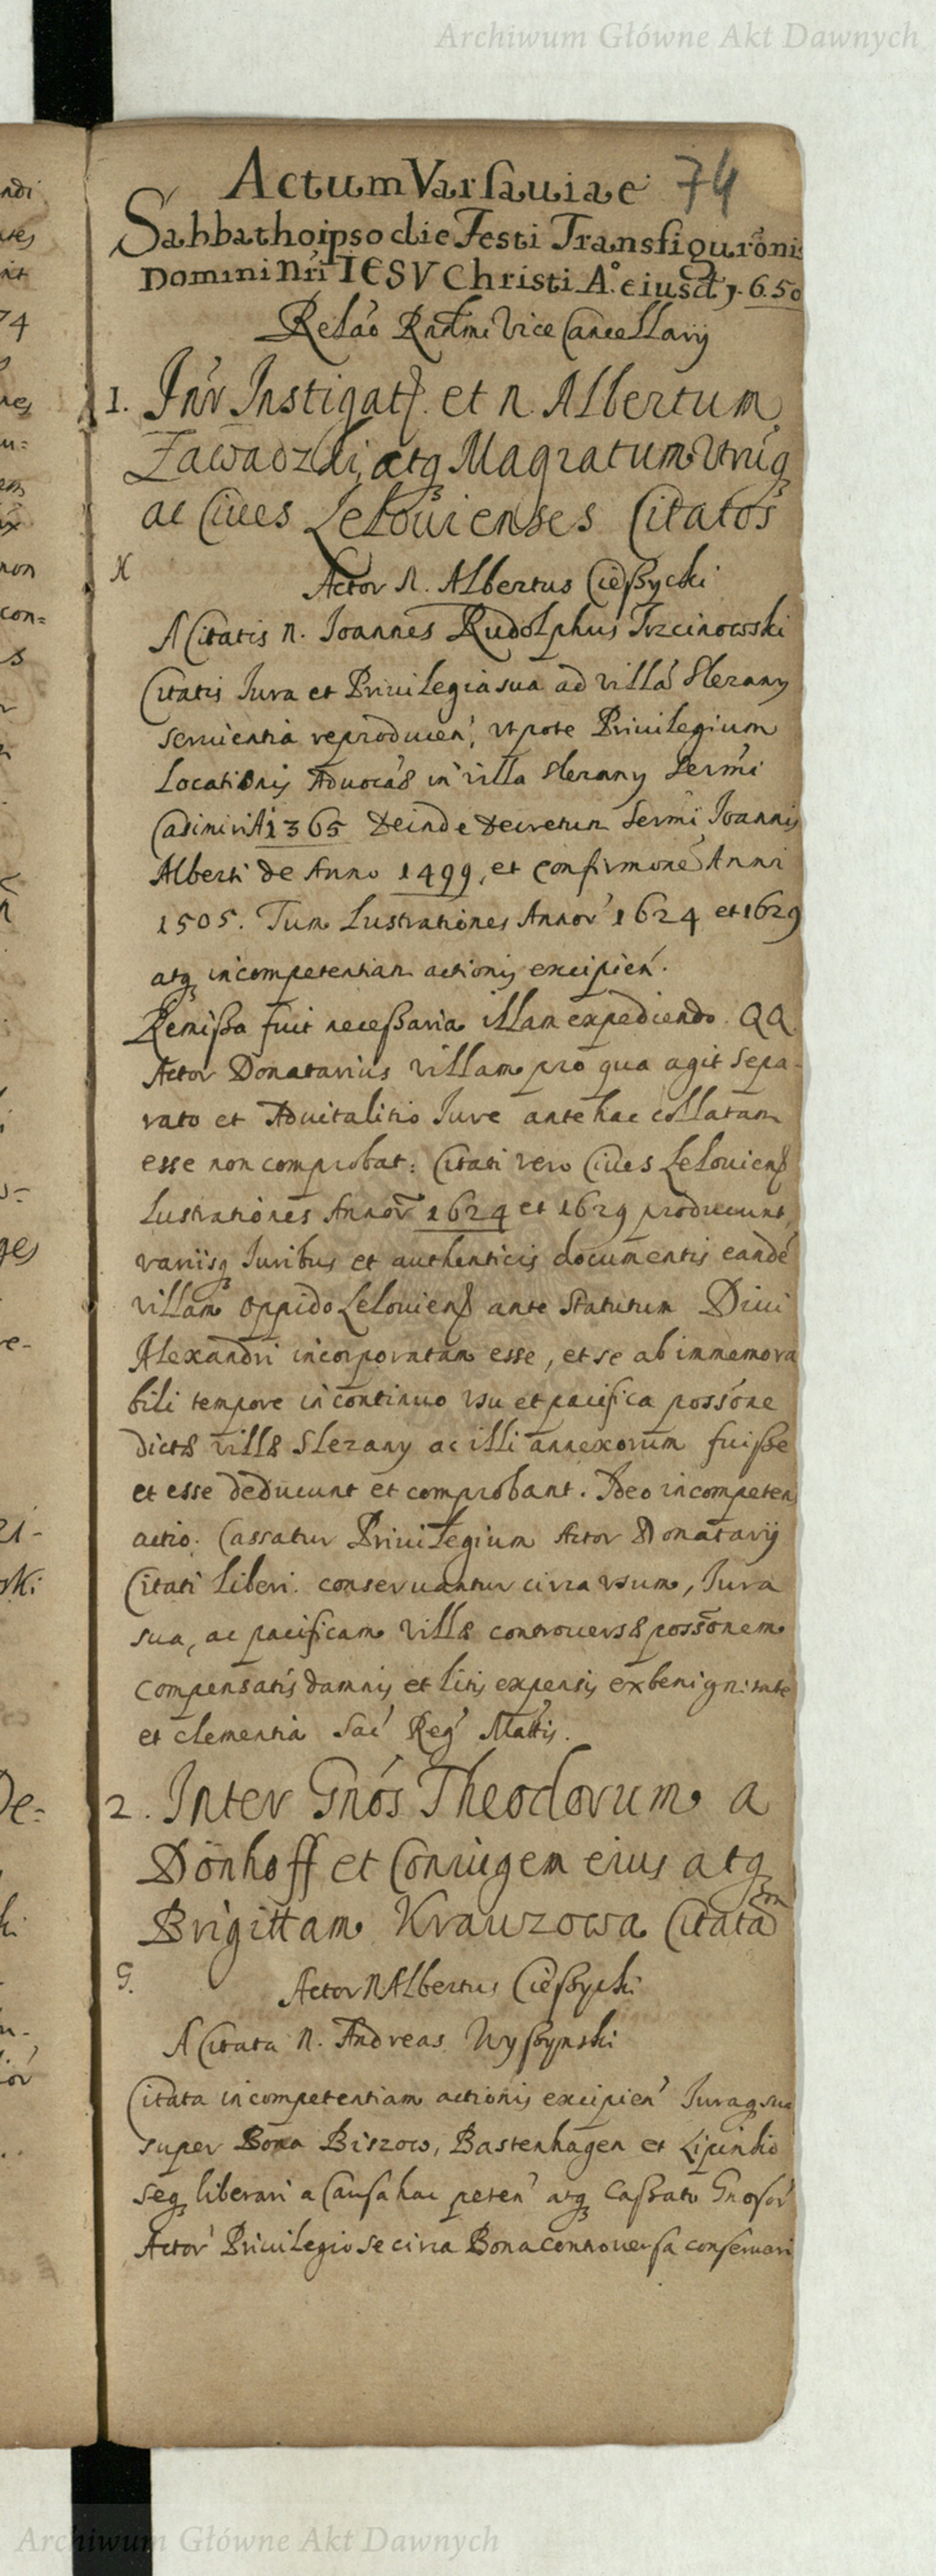 Archiwum Główne Akt Dawnych
Actum Varsauiae 74
Sabbatho ipso die Festi Transfiguroñis
Domini Nri IESV Christi A° eiusd 1650
Relao Rndmi Vice Cancellarij
1. Intr Instigat et n. Albertum
Zawadzki atq Magratum Vtrúq
ac Ciues Lelouienses Citatos
N
Actor N. Albertus Cießycki
A Citatis n. Joannes Rudolphus Trzcinowski
Citatis Iura et Priuilegia sua ad villá Slezany
seruientia reproducen', vt pote Priuilegium
Locationis Aduocae in villa Slezany Sermi
Casimiri A 1365 Deinde Decretum Sermi Joannis
Alberti de Anno 1499, et confirmone Anni
1505. Tum Lustrationes Annor' 1624 et 1629
atq incompetentiam actionis excipien'.
Remißa fuit neceßaria illam expediendo. QQ
Actor Donatarius villam pro qua agit sepa-
rato et Aduitalitio Iure ante hac collatam
esse non comprobat: Citati vero Ciues Lelouien
Lustrationes Annor 1624 et 1629 producunt,
variisq Iuribus et authenticis documentis eandé
villam oppido Lelouien ante Statutum Diui
Alexandri incorporatam esse, et se ab immemora
bili tempore in continuo vsu et pacifica possone
dictae villae Slezany ac illi annexorum fuiße
et esse deducunt et comprobant. Ideo incompeten
actio. Cassatur Priuilegium Actor Donatarij
Citati liberi. conseruantur circa vsum, Iura
sua, ac pacificam villae controuersae possonem
compensatis damnis et litis expensis ex benignitate
et clementia Sac' Reg' Mattis.
2. Inter Gnós Theodorum a
Dönhoff et Coniugem eius atq
Brigittam Krauzowa Citatam
G.
Actor N Albertus Cießycki
A Citata N. Andreas Wyßynski
Citata incompetentiam actionis excipien' Iuraq sua
super Bona Biszow, Bastenhagen et Lipinho
seq liberari a Causa hac peten' atq Caßato Gnosor'
Actor' Priuilegio se circa Bona controuersa conseruari
Archiwum Główne Akt Dawnych